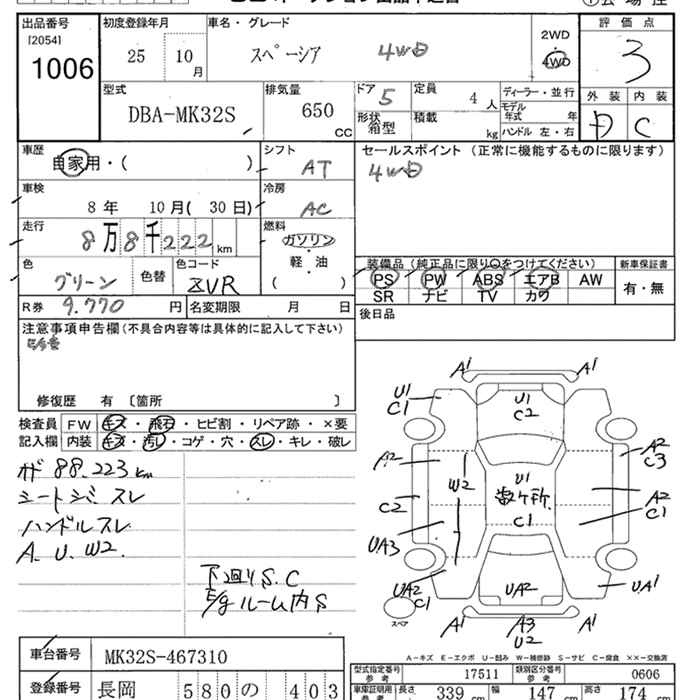 出品番号
[2054]
1006
初度登録年月
25 10 月
車名・グレード
スペーシア 4WD
2WD
4WD
評価点
3
外装 内装
D C
型式
DBA-MK32S
排気量
650 CC
ドア 5
形状 箱型
定員 4 人
積載 kg
ディーラー・並行
モデル年式 年
ハンドル 左・右
車歴
自家用・( )
シフト
AT
車検
8 年 10 月( 30 日)
冷房
AC
走行
8 万 8 千 222 km
燃料
ガソリン
軽・油
( )
色
グリーン
色替
色コード
ZVR
R券 9.770 円
名変期限 月 日
セールスポイント (正常に機能するものに限ります)
4WD
装備品 (純正品に限り○をつけてください)
PS PW ABS エアB AW
SR ナビ TV カワ
新車保証書
有・無
後日品
注意事項申告欄(不具合内容等は具体的に記入して下さい)
修復歴 有 〔箇所 〕
検査員 FW キズ・飛石・ヒビ割・リペア跡・×要
記入欄 内装 キズ・汚レ・コゲ・穴・スレ・キレ・破レ
88.223 km
シートシミ スレ
ハンドルスレ
A. U. W2.
下廻りS.C
E/gルーム内S
A1
A1
U1
C1
U1
C2
A1
A2
C3
A2
W2
U1
数ヶ所
C1
A2
C1
C2
UA3
UA2
C1
UA2
UA1
スペア
A1
A3
U2
A1
A-キズ E-エクボ U-凹み W-補修跡 S-サビ C-腐食 ××-交換済
車台番号 MK32S-467310
型式指定番号 参考 17511
類別区分番号 参考 0606
登録番号 長岡 580 の 403
車庫証明用 参考
長さ 339 cm
幅 147 cm
高さ 174 cm